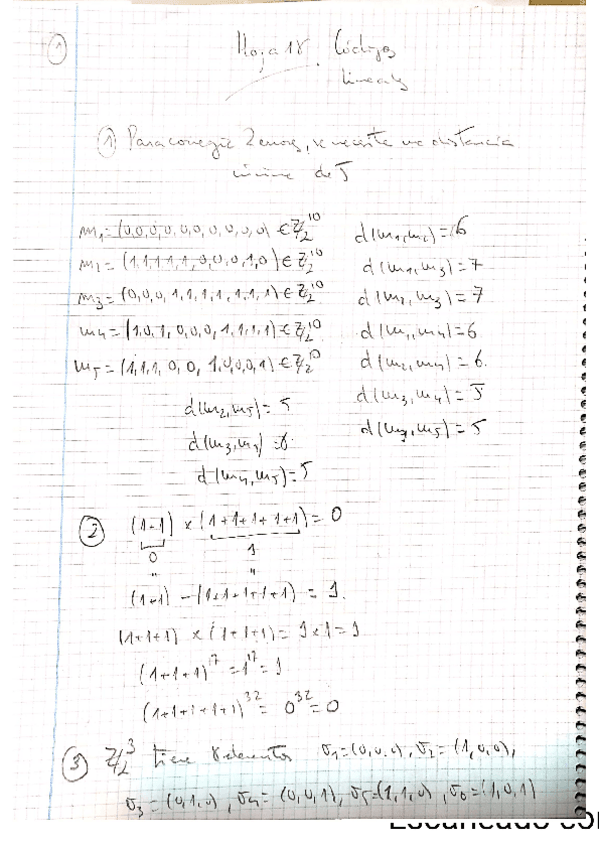 ①
Hoja 18. Códigos
lineales
① Para corregir 2 errores, se necesita una distancia
mínima de 5
m₁=(0,0,0,0,0,0,0,0,0,0)∈ℤ₂¹⁰ d(m₁,m₂)=6
m₂=(1,1,1,1,1,0,0,0,1,0)∈ℤ₂¹⁰ d(m₁,m₃)=7
m₃=(0,0,0,1,1,1,1,1,1,1)∈ℤ₂¹⁰ d(m₂,m₃)=7
m₄=(1,0,1,0,0,0,1,1,1,1)∈ℤ₂¹⁰ d(m₁,m₄)=6
m₅=(1,1,1,0,0,1,0,0,0,1)∈ℤ₂¹⁰ d(m₂,m₄)=6.
d(m₂,m₅)=5 d(m₃,m₄)=5
=6 =5
d(m₄,m₅)=5
② (1-1)×(1+1+1+1+1)=0
0 1
" "
(1+1)-(1+1+1+1+1)=1.
(1+1+1)×(1+1+1)=1×1=1
(1+1+1)¹⁷=1¹⁷=1
³²=0³²=0
③ ℤ₂³ tiene 8 elementos σ₁=(0,0,0), σ₂=(1,0,0),
σ₃=(0,1,0), σ₄=(0,0,1), σ₅=(1,1,0), σ₆=(1,0,1)